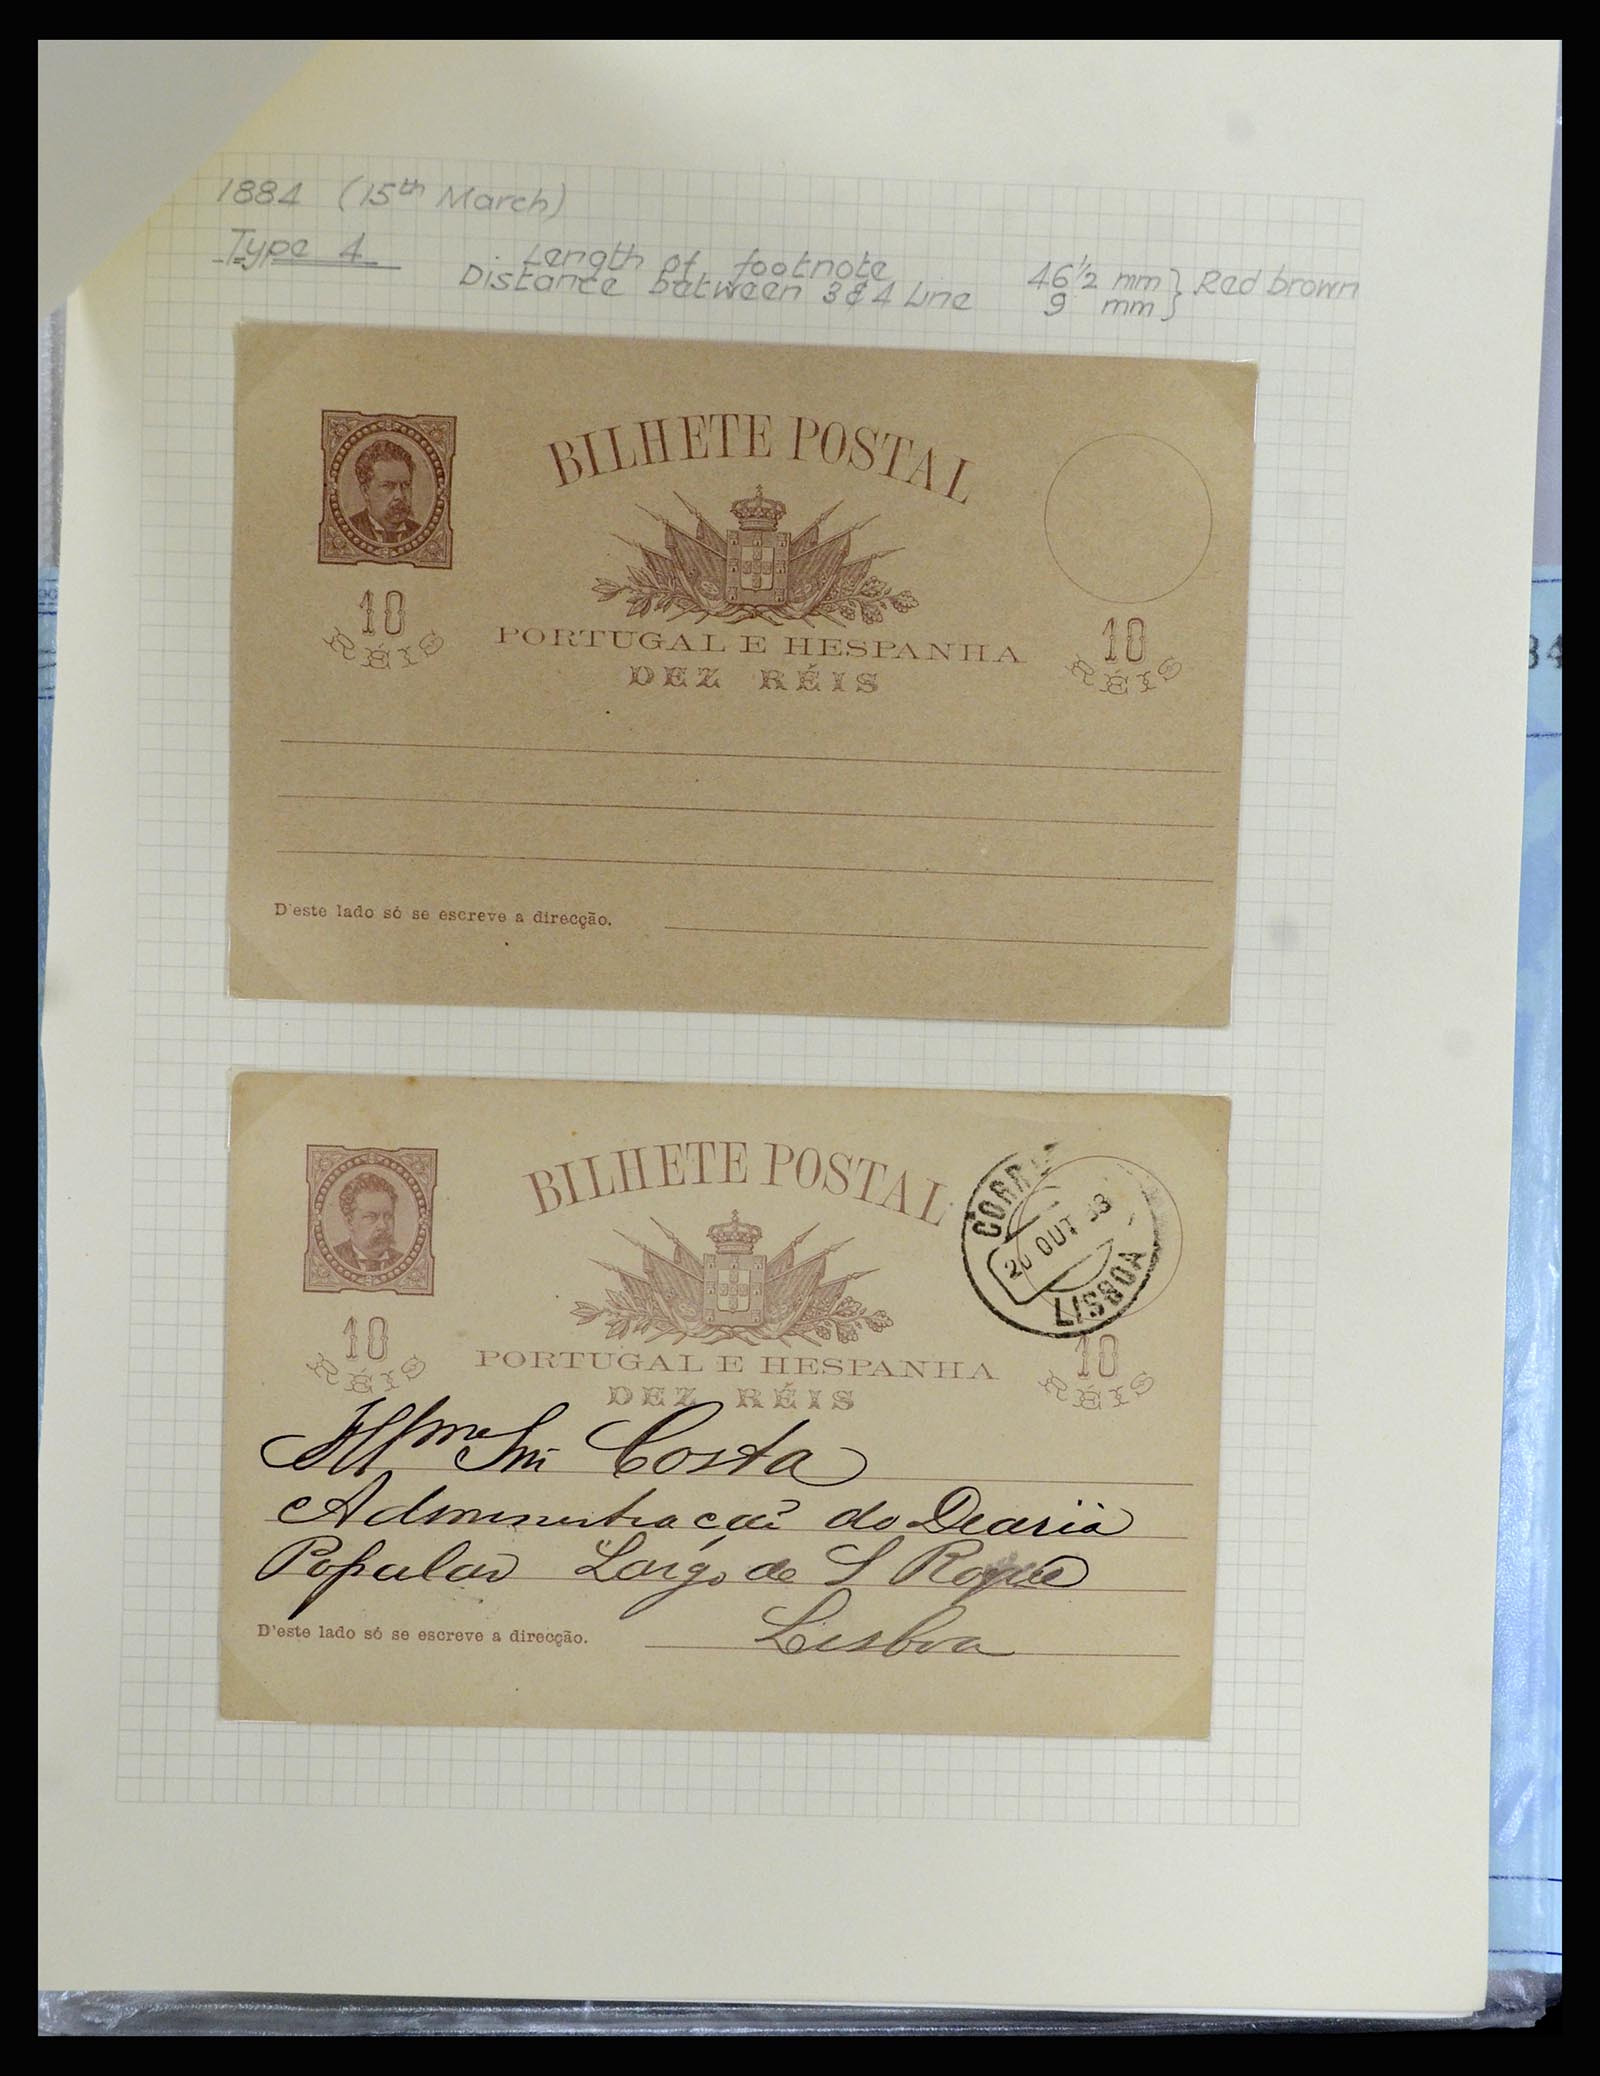 1884 (15th March)
Type 4
Length of footnote 46½ mm } Red brown
Distance between 3 & 4 Line 9 mm }
BILHETE POSTAL
10
RÉIS
PORTUGAL E HESPANHA
DEZ RÉIS
10
RÉIS
D'este lado só se escreve a direcção.
BILHETE POSTAL
LISBOA
10
RÉIS
PORTUGAL E HESPANHA
DEZ RÉIS
10
RÉIS
Illmo Snr Costa
Administração do Diario
Popular Largo de S Roque
D'este lado só se escreve a direcção.
Lisboa